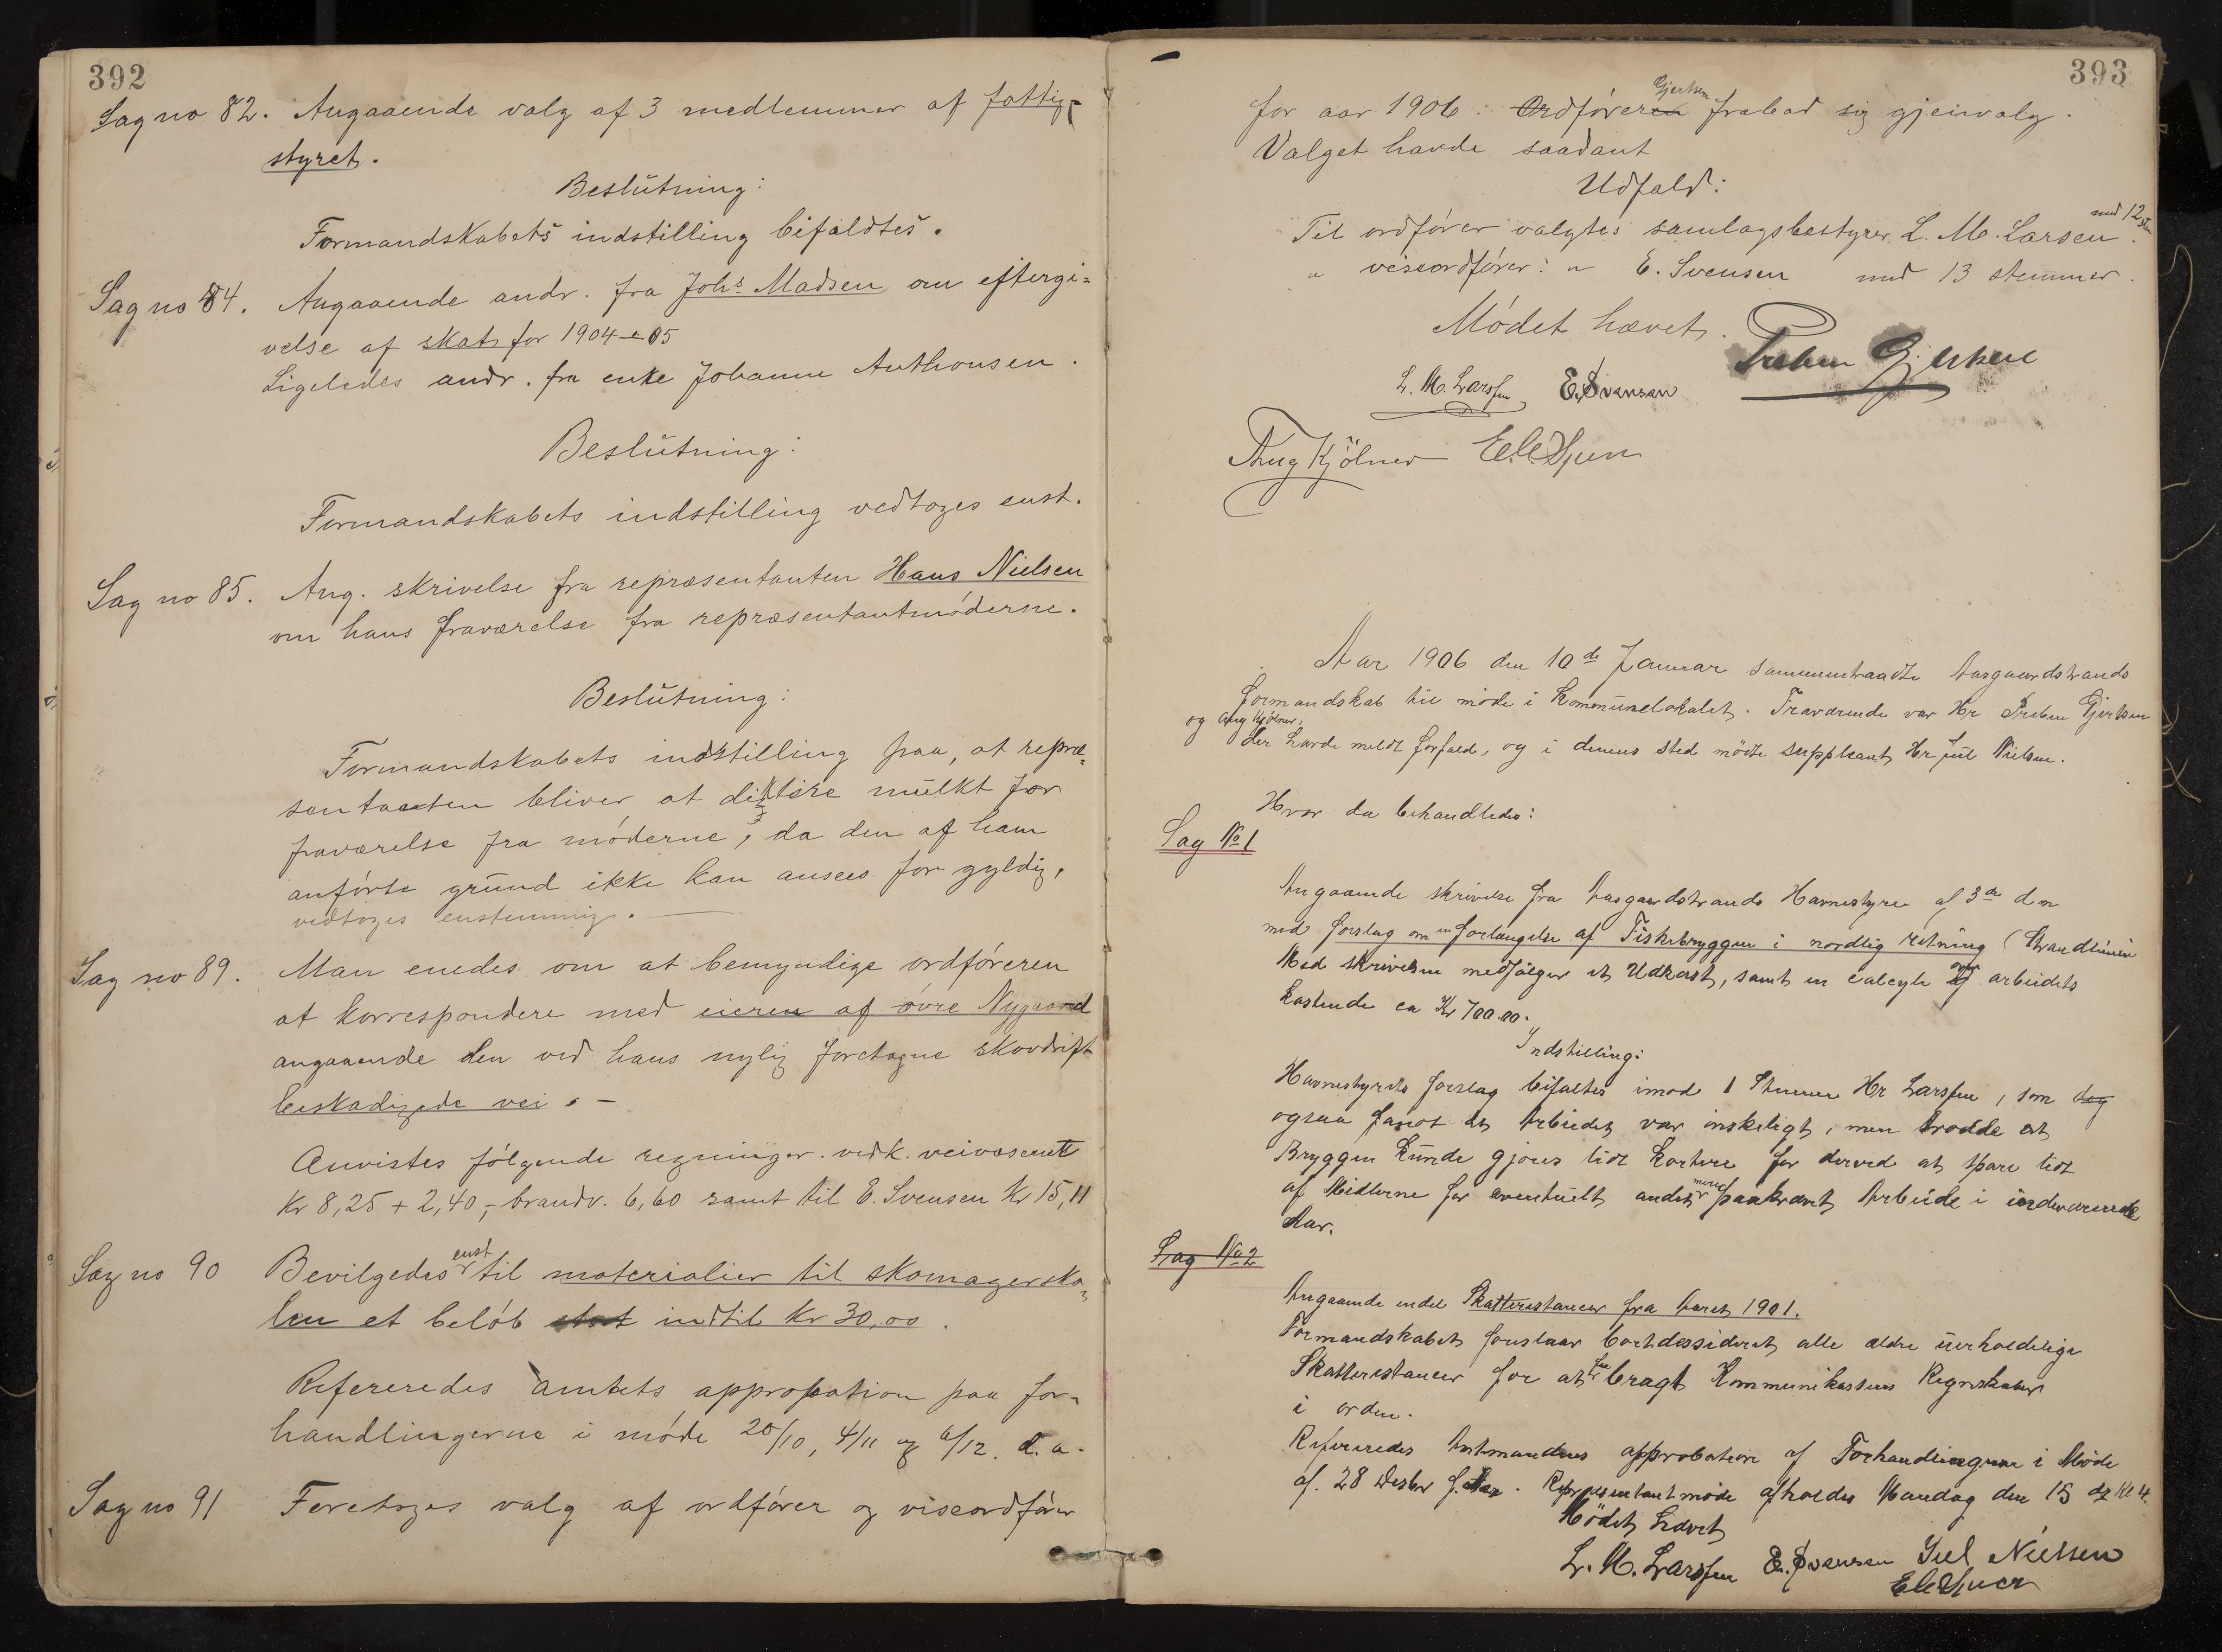 392
Sag no 82. Angaaende valg af 3 medlemmer af fattig-
styret.
Beslutning:
Formandskabets indstilling bifaldtes.
Sag no 84. Angaaende andr. fra Johs Madsen om eftergi=
velse af skat for 1904-05
Ligeledes andr. fra enke Johanne Anthonsen.
Beslutning:
Formandskabets indstilling vedtoges enst.
Sag no 85. Ang. skrivelse fra repræsentanten Hans Nielsen
om hans fraværelse fra repræsentantmøderne.
Beslutning:
Formandskabets indstilling paa, at repræ=
sentanten bliver at diktere mulkt for
fraværelse fra møderne, da den af ham
anførte grund ikke kan ansees for gyldig,
vedtoges enstemmig.
Sag no 89. Man enedes om at bemyndige ordføreren
at korrespondere med eieren af øvre Nygaard
angaaende den ved hans nylig foretagne skovdrift
beskadigede vei. -
Anvistes følgende regninger. vedk. veivæsenet
Kr 8,25 + 2,40,- brandv. 6,60 samt til E. Svensen Kr 15,11
Sag no 90 Bevilgedes enst til materialier til skomagersko=
len et beløb indtil Kr 30,00.
Refereredes amtets approbation paa for=
handlingerne i møde 20/10, 4/11 og 6/12. d. a.
Sag no 91 Foretoges valg af ordfører og viseordfører
393
for aar 1906. Ordføreren Gjertsen frabad sig gjenvalg.
Valget havde saadant
Udfald:
Til ordfører valgtes samlagsbestyrer L. M. Larsen med 12 stm.
" viseordfører: " E. Svensen med 13 stemmer.
Mødet hævet.
Preben Gjertsen
L. M. Larssen E. Svensen
Aug Kjölner
Aar 1906 den 10de Januar sammentraadte Aasgaardstrands
formandskab til møde i Kommunelokalet. Fraværende var Hr Preben Gjertsen
og Aug Kjölner,
der havde meldt forfald, og i dennes sted mødte suppleant Hr Jul Nielsen.
Hvor da behandledes:
Sag No 1
Angaaende skrivelse fra Aasgaardstrands Havnestyre af 3de dn
med forslag om en forlængelse af Fiskebryggen i nordlig retning (Strandlinien
Med skrivelsen medfølger et Udkast, samt en calcyle over arbeidets
Kostende ca Kr 700.00.
Indstilling:
Havnestyrets forslag bifaltes imod 1 Stemme Hr Larssen, som dog
ogsaa fandt at Arbeidet var ønskeligt, men trodde at
Bryggen Kunde gjøres lidt kortere for derved at spare lidt
af Midlerne for eventuelt andet mere paakrævet Arbeide i indeværende
Aar.
Sag No 2
Angaaende endel Skatterestancer fra Aaret 1901.
Formandskabet foreslaar bortdessideret alle ældre uerholdelige
Skatterestancer for at faa bragt Kommunekassens Regnskaber
i orden.
Refereredes Amtmandens approbation af Forhandlingerne i Møde
af. 28 Desbr f. Aar. Representantmøde afholdes Mandag den 15 ds Kl 4.
Mødet hævet
L. M. Larssen E. Svensen Jul Nielsen